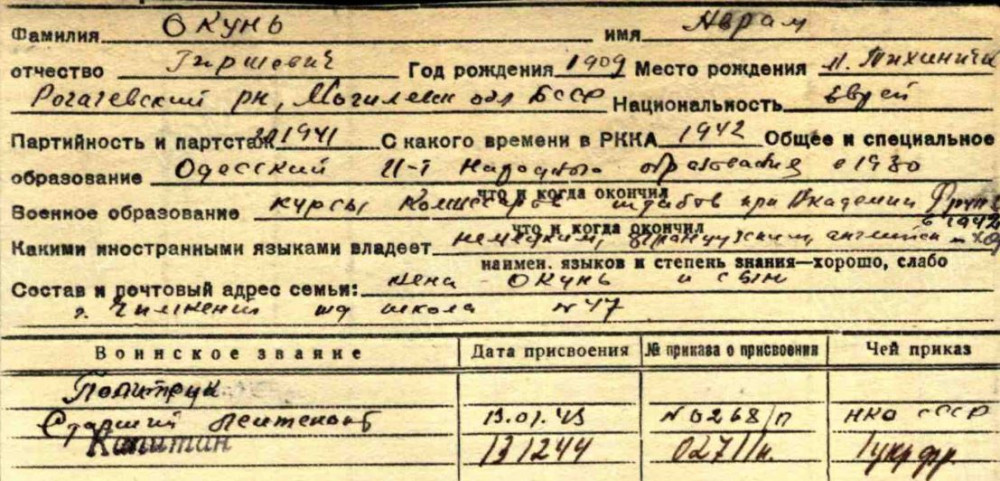 Фамилия ОКУНЬ имя Аврам
отчество Гиршевич Год рождения 1909 Место рождения м. Тихиничи
Рогачевский рн, Могилевск обл БССР Национальность еврей
Партийность и партстаж 1941 С какого времени в РККА 1942 Общее и специальное
образование Одесский И-т Народного образования в 1930
что и когда окончил
Военное образование курсы Комиссаров штабов при Академии Фрунзе
что и когда окончил в 1942
Какими иностранными языками владеет немецким, французским, английск
наимен. языков и степень знания—хорошо, слабо
Состав и почтовый адрес семьи: жена - ОКУНЬ и сын
г. школа N 47
Воинское звание Дата присвоения № приказа о присвоения Чей приказ
Политрук
Старший лейтенант 13.01.43 N 0268/п НКО СССР
Капитан 131244 0271/н. 1 укр фр.